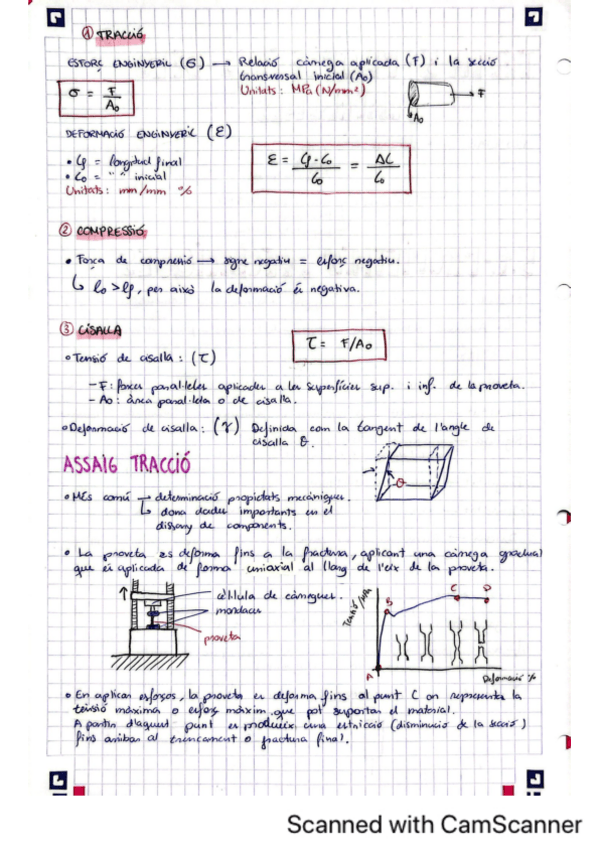 ① TRACCIÓ
ESFORÇ ENGINYERIL (σ) → Relació càrrega aplicada (F) i la secció
transversal inicial (A₀)
Unitats: MPa (N/mm²)
σ = F/A₀
F
A₀
DEFORMACIÓ ENGINYERIL (ε)
• lf = longitud final
• l₀ = " " inicial
Unitats: mm/mm %
ε = (lf - l₀)/l₀ = Δl/l₀
② COMPRESSIÓ
• Força de compressió → signe negatiu = esforç negatiu.
↳ l₀ > lf, per això la deformació és negativa.
③ CISALLA
τ = F/A₀
• Tensió de cisalla: (τ)
- F: forces paral·leles aplicades a les superfícies sup. i inf. de la proveta.
- A₀: àrea paral·lela o de cisalla.
• Deformació de cisalla: (γ) Definida com la tangent de l'angle de
cisalla θ.
θ
ASSAIG TRACCIÓ
• Més comú → determinació propietats mecàniques.
↳ dona dades importants en el
disseny de components.
• La proveta es deforma fins a la fractura, aplicant una càrrega gradual
que és aplicada de forma uniaxial al llarg de l'eix de la proveta.
cèl·lula de càrregues.
mordaces
proveta
Tensió/MPa
A
B
C
D
Deformació %
• En aplicar esforços, la proveta es deforma fins al punt C on representa la
tensió màxima o esforç màxim que pot suportar el material.
A partir d'aquest punt es produeix una estricció (disminució de la secció)
fins arribar al trencament o fractura final.
Scanned with CamScanner